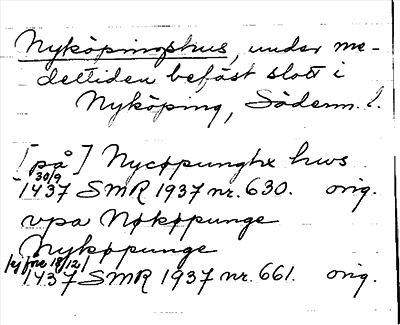 Nyköpingshus, under me-
deltiden befäst slott i
Nyköping, Söderm. l.
[på] Nycøpunghx hws
30/9
1437 SMR 1937 nr. 630. orig.
vpa Nøkøpunge
Nykøpunge
/ej före 18/12/
1437 SMR 1937 nr. 661. orig.